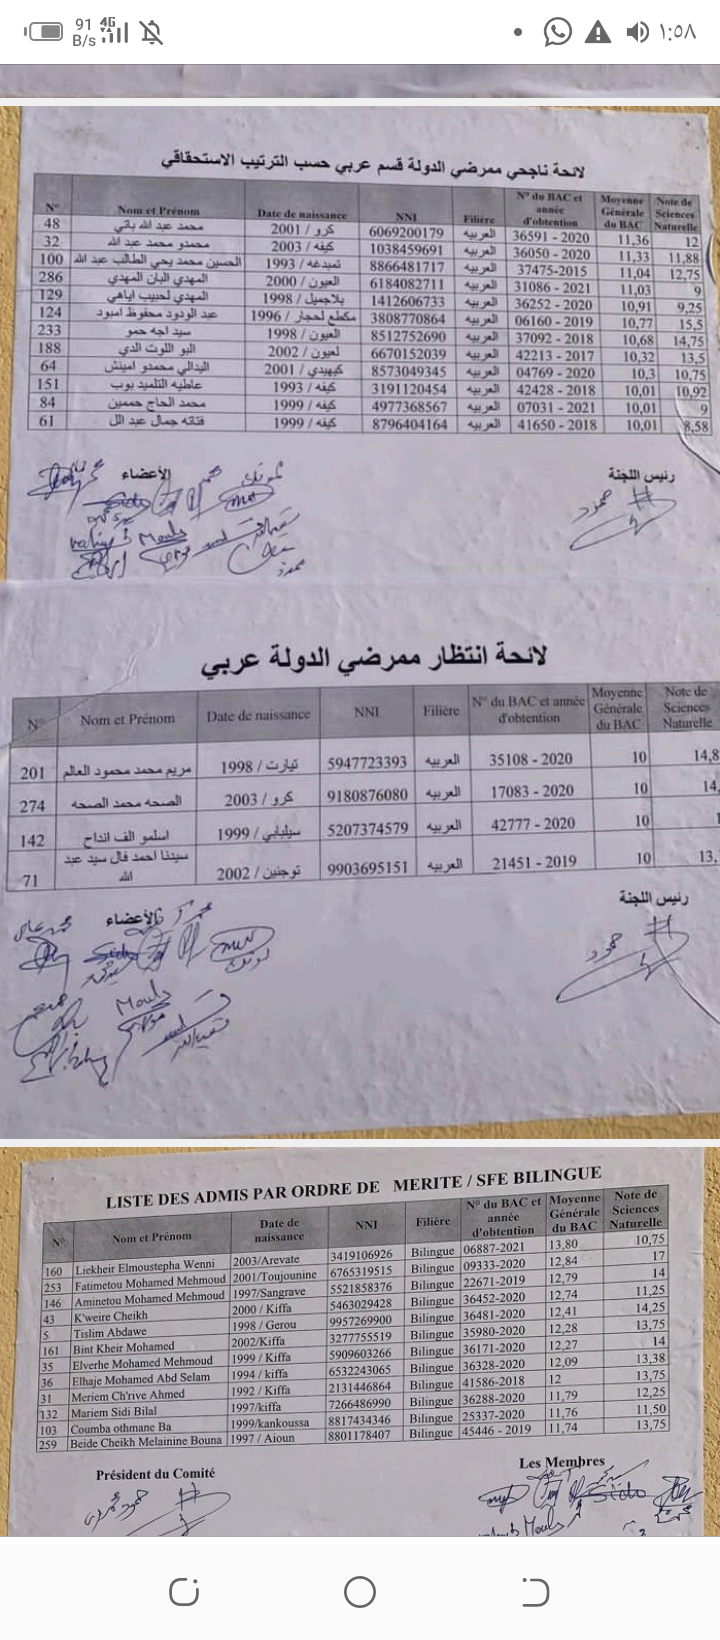 91 B/s 4G ١:٥٨
لائحة ناجحي ممرضي الدولة قسم عربي حسب الترتيب الاستحقاقي
N° Nom et Prénom Date de naissance NNI Filière N° du BAC et année d'obtention Moyenne Générale du BAC Note de Sciences Naturelle
48 محمد عبد الله باتي كرو / 2001 6069200179 العربيه 36591 - 2020 11,36 12
32 محمدو محمد عبد الله كيفه / 2003 1038459691 العربيه 36050 - 2020 11,33 11,88
100 الحسين محمد يحي الطالب عبد الله تمبدغه / 1993 8866481717 العربيه 37475-2015 11,04 12,75
286 المهدي البان المهدي العيون / 2000 6184082711 العربيه 31086 - 2021 11,03 9
129 المهدي لحبيب اياهي بلاجميل / 1998 1412606733 العربيه 36252 - 2020 10,91 9,25
124 عبد الودود محفوظ امبود مكطع لحجار / 1996 3808770864 العربيه 06160 - 2019 10,77 15,5
233 سيد اجه حمو العيون / 1998 8512752690 العربيه 37092 - 2018 10,68 14,75
188 البو اللوت الدي لعيون / 2002 6670152039 العربيه 42213 - 2017 10,32 13,5
64 البدالي محمدو امينش كيهيدي / 2001 8573049345 العربيه 04769 - 2020 10,3 10,75
151 عاطيه التلميد بوب كيفه / 1993 3191120454 العربيه 42428 - 2018 10,01 10,92
84 محمد الحاج حممين كيفه / 1999 4977368567 العربيه 07031 - 2021 10,01 9
61 فتاته جمال عبد الل كيفه / 1999 8796404164 العربيه 41650 - 2018 10,01 8,58
رئيس اللجنة الأعضاء
لائحة انتظار ممرضي الدولة عربي
N° Nom et Prénom Date de naissance NNI Filière N° du BAC et année d'obtention Moyenne Générale du BAC Note de Sciences Naturelle
201 مريم محمد محمود العالم تيارت / 1998 5947723393 العربيه 35108 - 2020 10 14,8
274 الصحه محمد الصحه كرو / 2003 9180876080 العربيه 17083 - 2020 10 14,
142 اسلمو الف انداح سيلبابي / 1999 5207374579 العربيه 42777 - 2020 10 1
71 سيدنا احمد فال سيد عبد الله توجنين / 2002 9903695151 العربيه 21451 - 2019 10 13,
رئيس اللجنة الأعضاء
LISTE DES ADMIS PAR ORDRE DE MERITE / SFE BILINGUE
N° Nom et Prénom Date de naissance NNI Filière N° du BAC et année d'obtention Moyenne Générale du BAC Note de Sciences Naturelle
160 Liekheir Elmoustepha Wenni 2003/Arevate 3419106926 Bilingue 06887-2021 13,80 10,75
253 Fatimetou Mohamed Mehmoud 2001/Toujounine 6765319515 Bilingue 09333-2020 12,84 17
146 Aminetou Mohamed Mehmoud 1997/Sangrave 5521858376 Bilingue 22671-2019 12,79 14
43 K'weire Cheikh 2000 / Kiffa 5463029428 Bilingue 36452-2020 12,74 11,25
5 Tislim Abdawe 1998 / Gerou 9957269900 Bilingue 36481-2020 12,41 14,25
161 Bint Kheir Mohamed 2002/Kiffa 3277755519 Bilingue 35980-2020 12,28 13,75
35 Elverhe Mohamed Mehmoud 1999 / Kiffa 5909603266 Bilingue 36171-2020 12,27 14
36 Elhaje Mohamed Abd Selam 1994 / kiffa 6532243065 Bilingue 36328-2020 12,09 13,38
31 Meriem Ch'rive Ahmed 1992 / Kiffa 2131446864 Bilingue 41586-2018 12 13,75
132 Mariem Sidi Bilal 1997/kiffa 7266486990 Bilingue 36288-2020 11,79 12,25
103 Coumba othmane Ba 1999/kankoussa 8817434346 Bilingue 25337-2020 11,76 11,50
259 Beide Cheikh Melainine Bouna 1997 / Aioun 8801178407 Bilingue 45446 - 2019 11,74 13,75
Président du Comité Les Membres